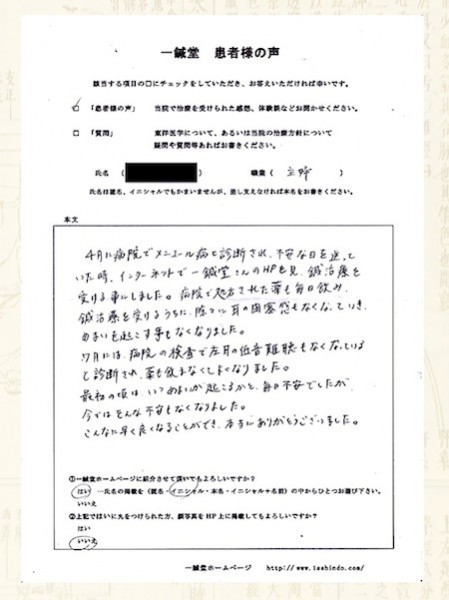 一鍼堂 患者様の声
該当する項目の□にチェックをしていただき、お答えいただければ幸いです。
☑ 「患者様の声」 当院で治療を受けられた感想、体験談などお聞かせください。
□ 「質問」 東洋医学について、あるいは当院の治療方針について
疑問や質問等あればお書きください。
氏名 ( ) 職業 ( 主婦 )
氏名は匿名、イニシャルでもかまいませんが、差し支えなければ本名をお書きください。
本文
4月に病院でメニエール病と診断され、不安な日を送っ
ていた時、インターネットで一鍼堂さんのHPを見、鍼治療を
受ける事にしました。病院で処方された薬も毎日飲み、
鍼治療を受けるうちに、除々に耳の閉塞感もなくなっていき、
めまいを起こす事もなくなりました。
7月には、病院の検査で左耳の低音難聴もなくなっている
と診断され、薬も飲まなくてよくなりました。
最初の頃は、いつめまいが起こるかと、毎日不安でしたが、
今ではそんな不安もなくなりました。
こんなに早く良くなることができ、本当にありがとうございました。
①一鍼堂ホームページに紹介させて頂いてもよろしいですか？
はい ―氏名の掲載を（匿名・イニシャル・本名・イニシャル＋名前）の中からひとつお選び下さい。
いいえ
②上記ではいに丸をつけられた方、顔写真をHP上に掲載してもよろしいですか？
はい
いいえ
一鍼堂ホームページ http://www.isshindo.com/